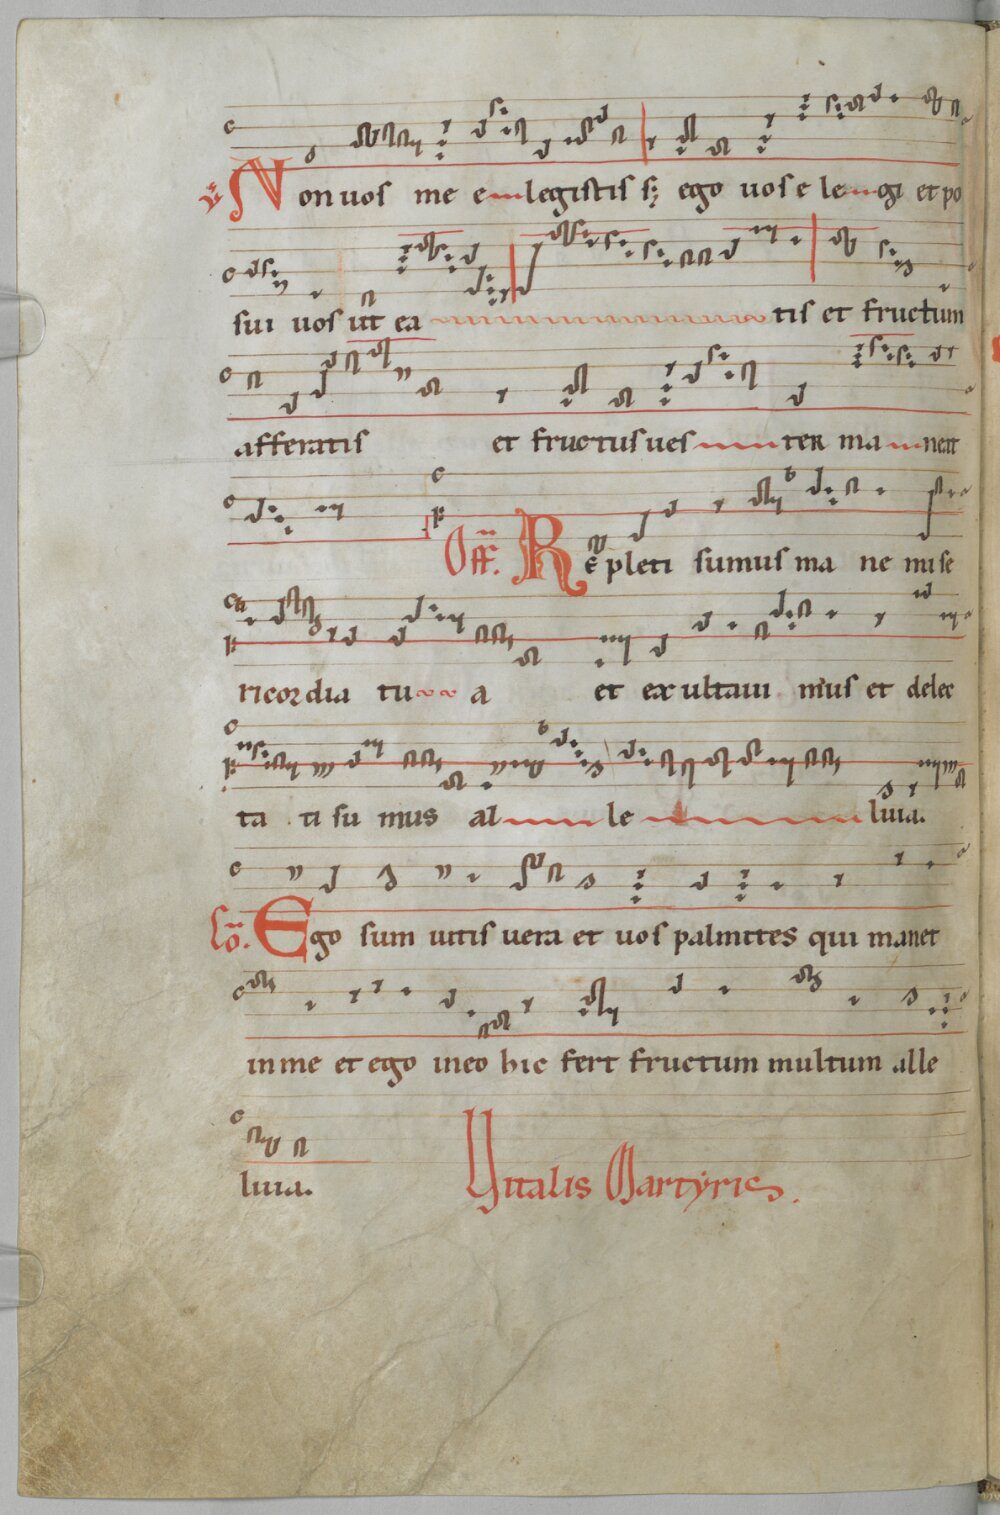 V. Non vos me elegistis s; ego vos elegi et po
sui vos ut eatis et fructum
afferatis et fructus ves ter maneat
Off. Repleti sumus mane mise
ricordia tu a et exultavi mus et delec
ta ti su mus al le luia.
Co. Ego sum vitis vera et vos palmites qui manet
in me et ego in eo hic fert fructum multum alle
luia. Vitalis Martyris.